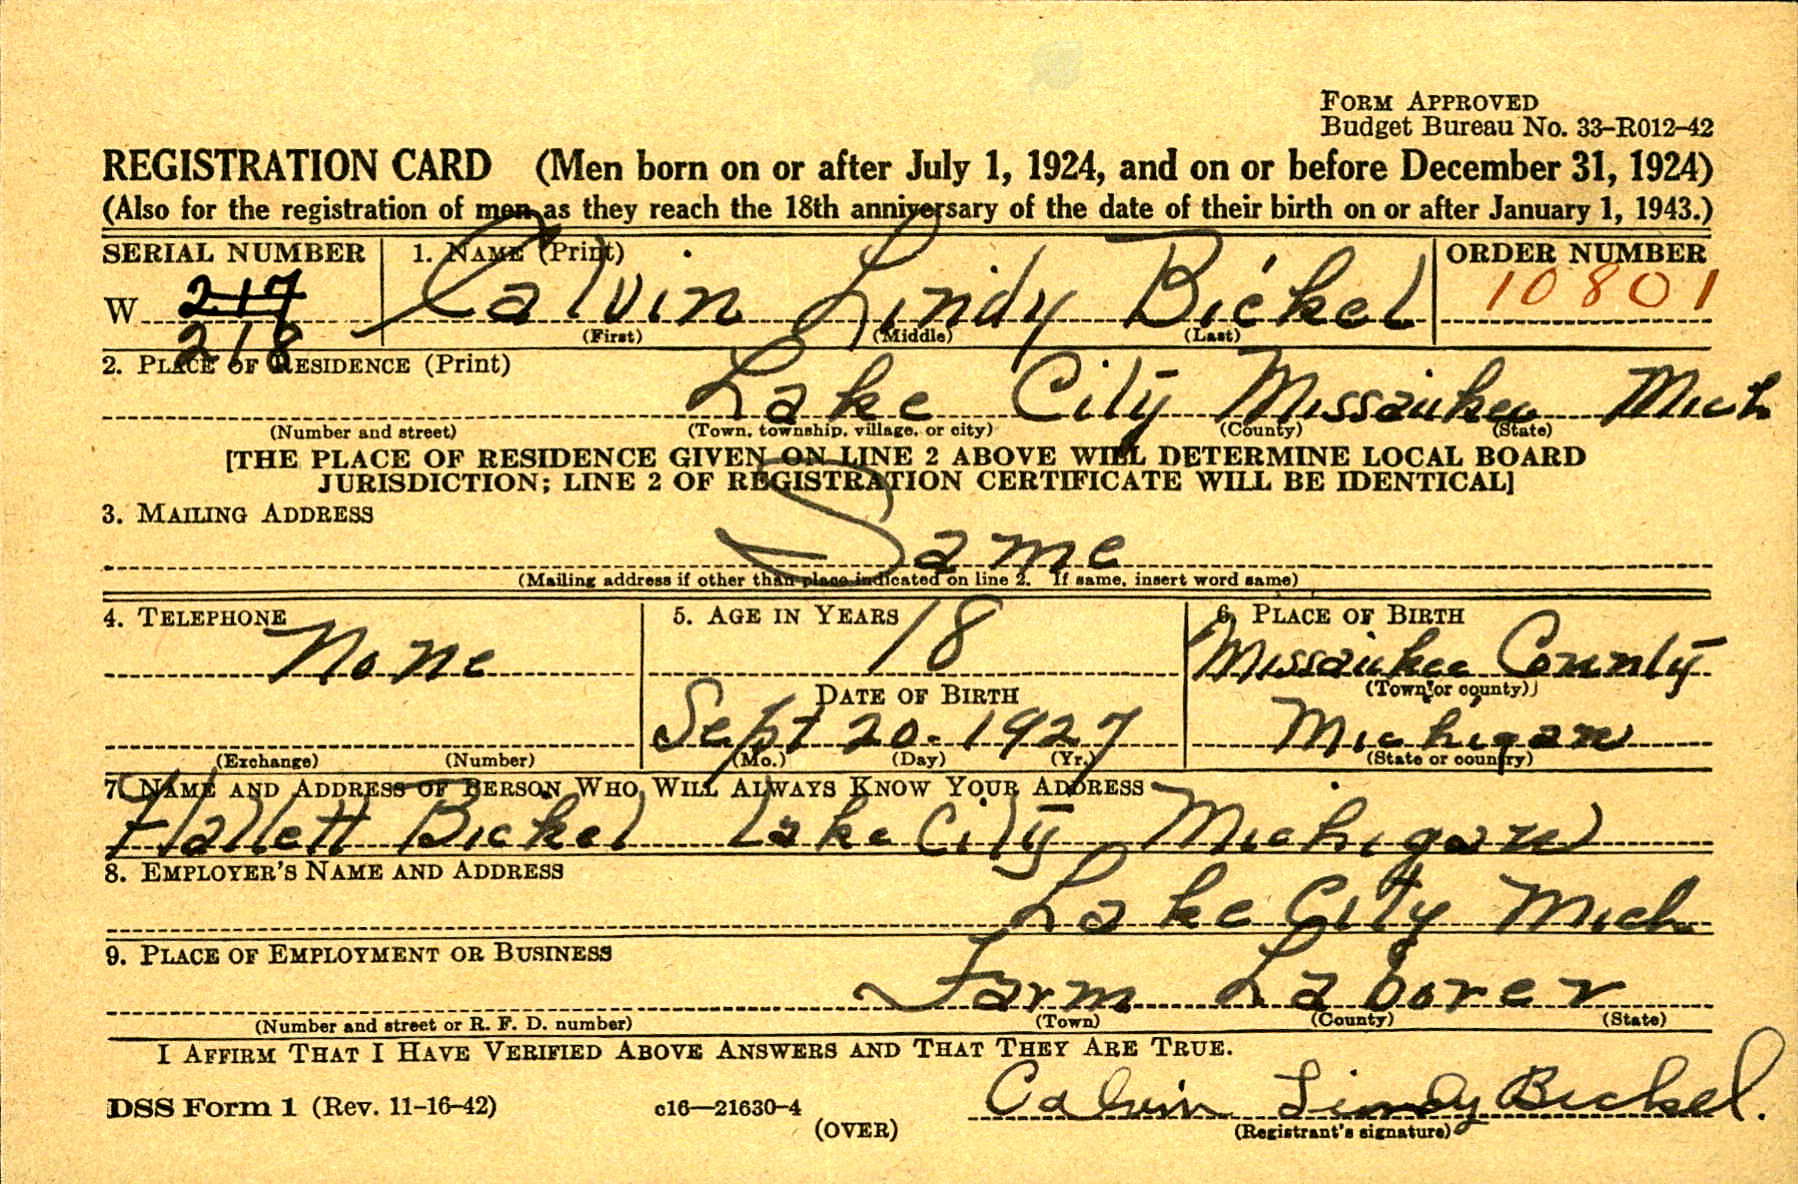 FORM APPROVED
Budget Bureau No. 33–R012–42
REGISTRATION CARD (Men born on or after July 1, 1924, and on or before December 31, 1924)
(Also for the registration of men as they reach the 18th anniversary of the date of their birth on or after January 1, 1943.)
SERIAL NUMBER 1. NAME (Print) ORDER NUMBER
W 217 Calvin Lindy Bickel 10801
218 (First) (Middle) (Last)
2. PLACE OF RESIDENCE (Print)
Lake City Missaukee Mich
(Number and street) (Town, township, village, or city) (County) (State)
[THE PLACE OF RESIDENCE GIVEN ON LINE 2 ABOVE WILL DETERMINE LOCAL BOARD
JURISDICTION; LINE 2 OF REGISTRATION CERTIFICATE WILL BE IDENTICAL]
3. MAILING ADDRESS
Same
(Mailing address if other than place indicated on line 2. If same, insert word same)
4. TELEPHONE 5. AGE IN YEARS 6. PLACE OF BIRTH
None 18 Missaukee County
(Town or county)
DATE OF BIRTH
Sept 20. 1927 Michigan
(Exchange) (Number) (Mo.) (Day) (Yr.) (State or country)
7. NAME AND ADDRESS OF PERSON WHO WILL ALWAYS KNOW YOUR ADDRESS
Hallett Bickel Lake City Michigan
8. EMPLOYER'S NAME AND ADDRESS
Lake City Mich
9. PLACE OF EMPLOYMENT OR BUSINESS
Farm Laborer
(Number and street or R. F. D. number) (Town) (County) (State)
I AFFIRM THAT I HAVE VERIFIED ABOVE ANSWERS AND THAT THEY ARE TRUE.
DSS Form 1 (Rev. 11-16-42) c16—21630-4 Calvin Lindy Bickel.
(OVER) (Registrant's signature)